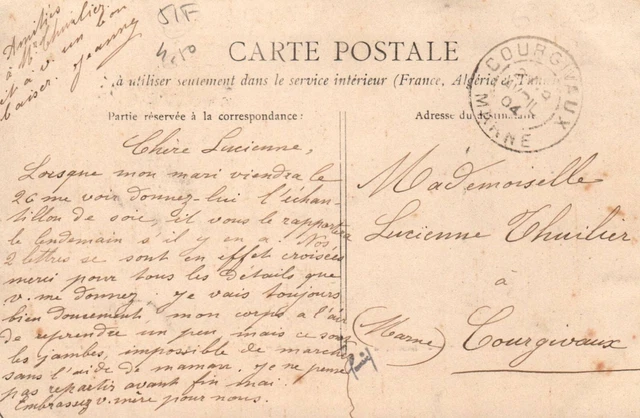 Amitiés
à Mr Thuilier
et à v. un bon
baiser. Jeanne
51F
4.10
CARTE POSTALE
à utiliser seulement dans le service intérieur (France, Algérie et Tunisie
COURGIVAUX
AVRIL
04
MARNE
Partie réservée à la correspondance:
Adresse du destinataire
Chère Lucienne,
Lorsque mon mari viendra le
26 me voir donnez-lui l'échan-
tillon de soie, il vous le rapportera
le lendemain s'il y en a. Nos
2 lettres se sont en effet croisées
merci pour tous les détails que
v. me donnez. Je vais toujours
bien doucement, mon corps a l'air
de reprendre un peu mais ce sont
les jambes, impossible de marcher
sans l'aide de maman. Je ne pense
pas repartir avant fin mai.
Embrassez v. mère pour nous.
Mademoiselle
Lucienne Thuilier
à
Courgivaux
(Marne)